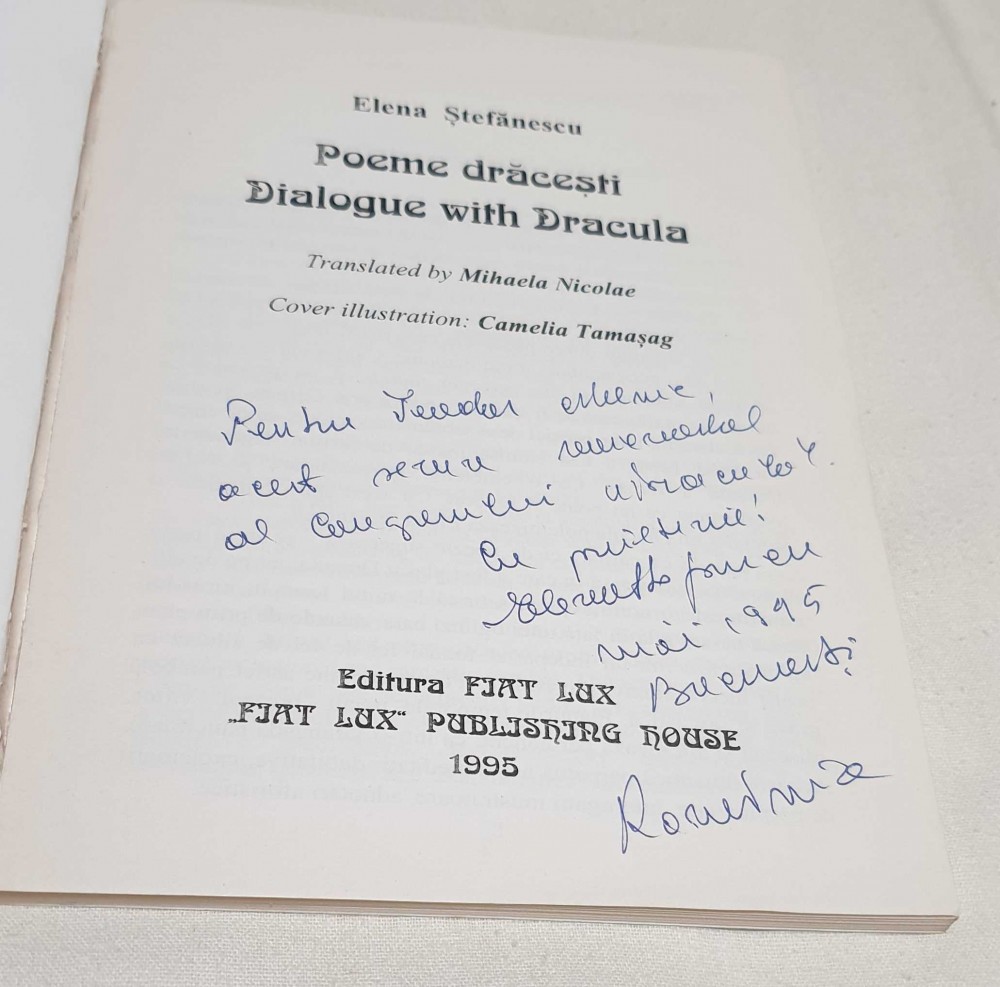 Elena Ștefănescu
Poeme drăcești
Dialogue with Dracula
Translated by Mihaela Nicolae
Cover illustration: Camelia Tamașag
Pentru
acest semn memorial
al Congresului
Cu prietenie!
mai 1995
București
Editura FIAT LUX
„FIAT LUX“ PUBLISHING HOUSE
1995
România